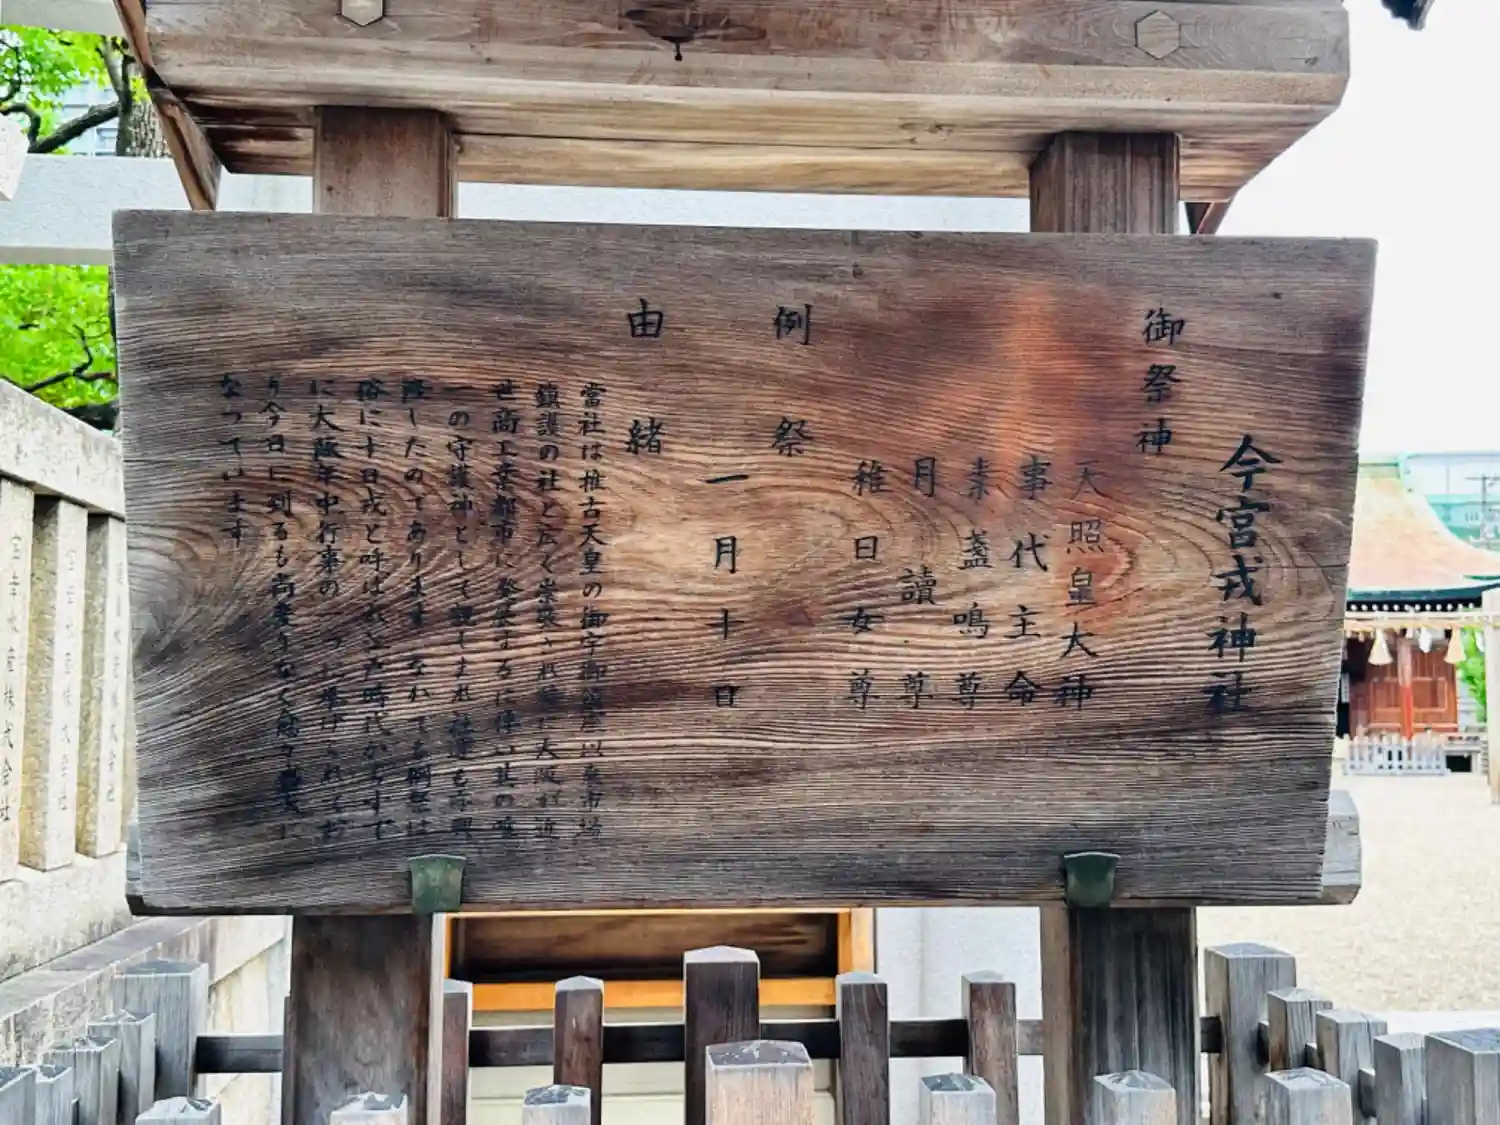 今宮戎神社
御祭神
天照皇大神
事代主命
素盞鳴尊
月讀尊
稚日女尊
例祭
一月十日
由緒
當社は推古天皇の御宇御鎮座以来市場
鎮護の社と広く崇敬され殊に大阪が近
世商工業都市に発展するに伴い社の唯
一の守護神として親しまれ社運も亦興
隆したのであります なかでも例祭は
俗に十日戎と呼ばれ 時代からすで
に大阪年中行事の一つに挙げられてお
り今日に到るも尚変りなく 々盛大に
なっています